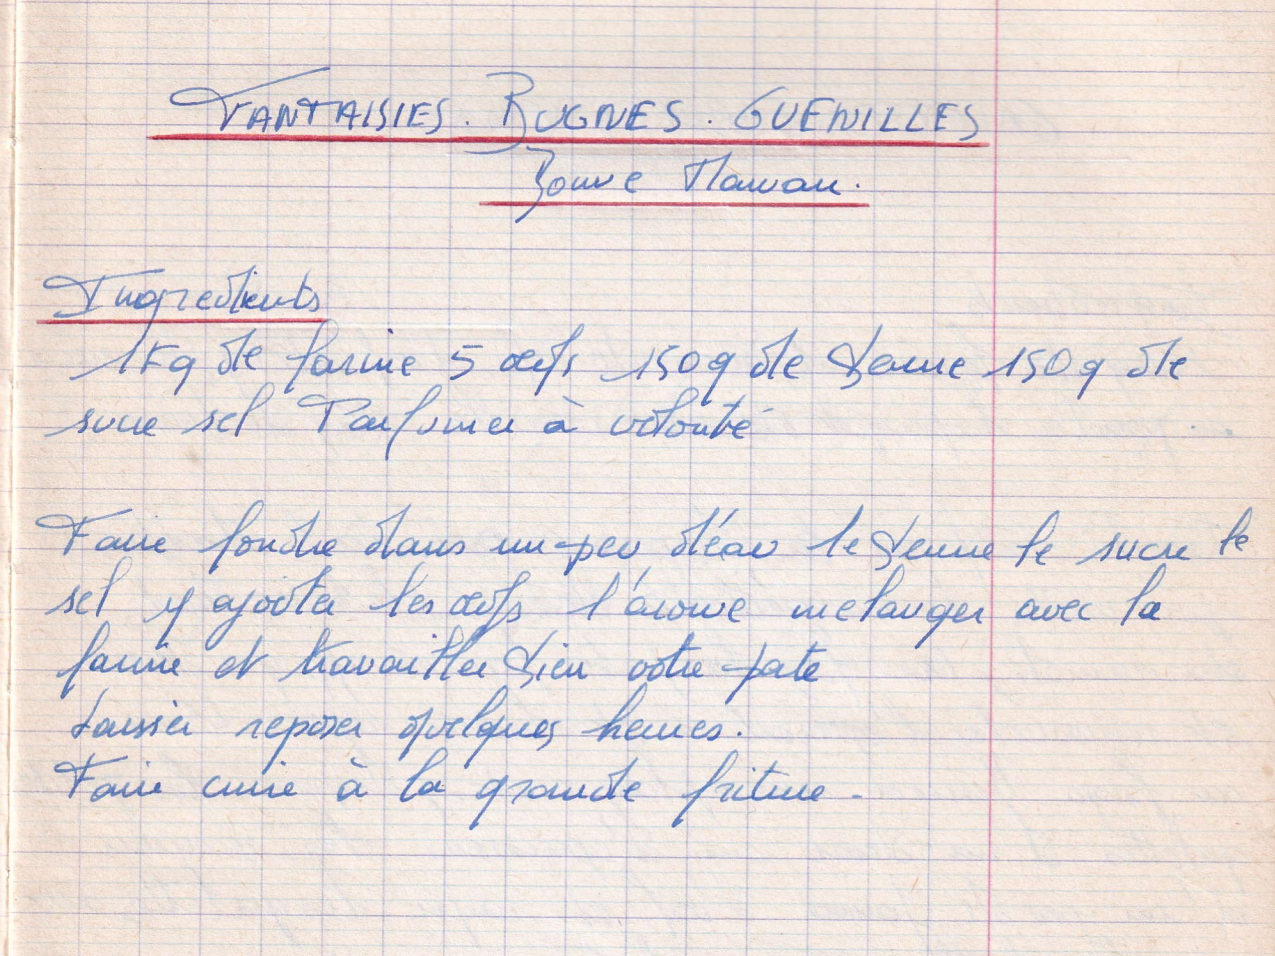 FANTAISIES. BUGNES. GUENILLES
Bonne Maman.
Ingredients
1Kg de farine 5 œufs 150g de beurre 150g de
sucre sel Parfumer à volonté
Faire fondre dans un peu d'eau le beurre le sucre le
sel y ajouter les œufs l'arome melanger avec la
farine et travailler bien votre pate
Laisser reposer quelques heures.
Faire cuire à la grande friture.